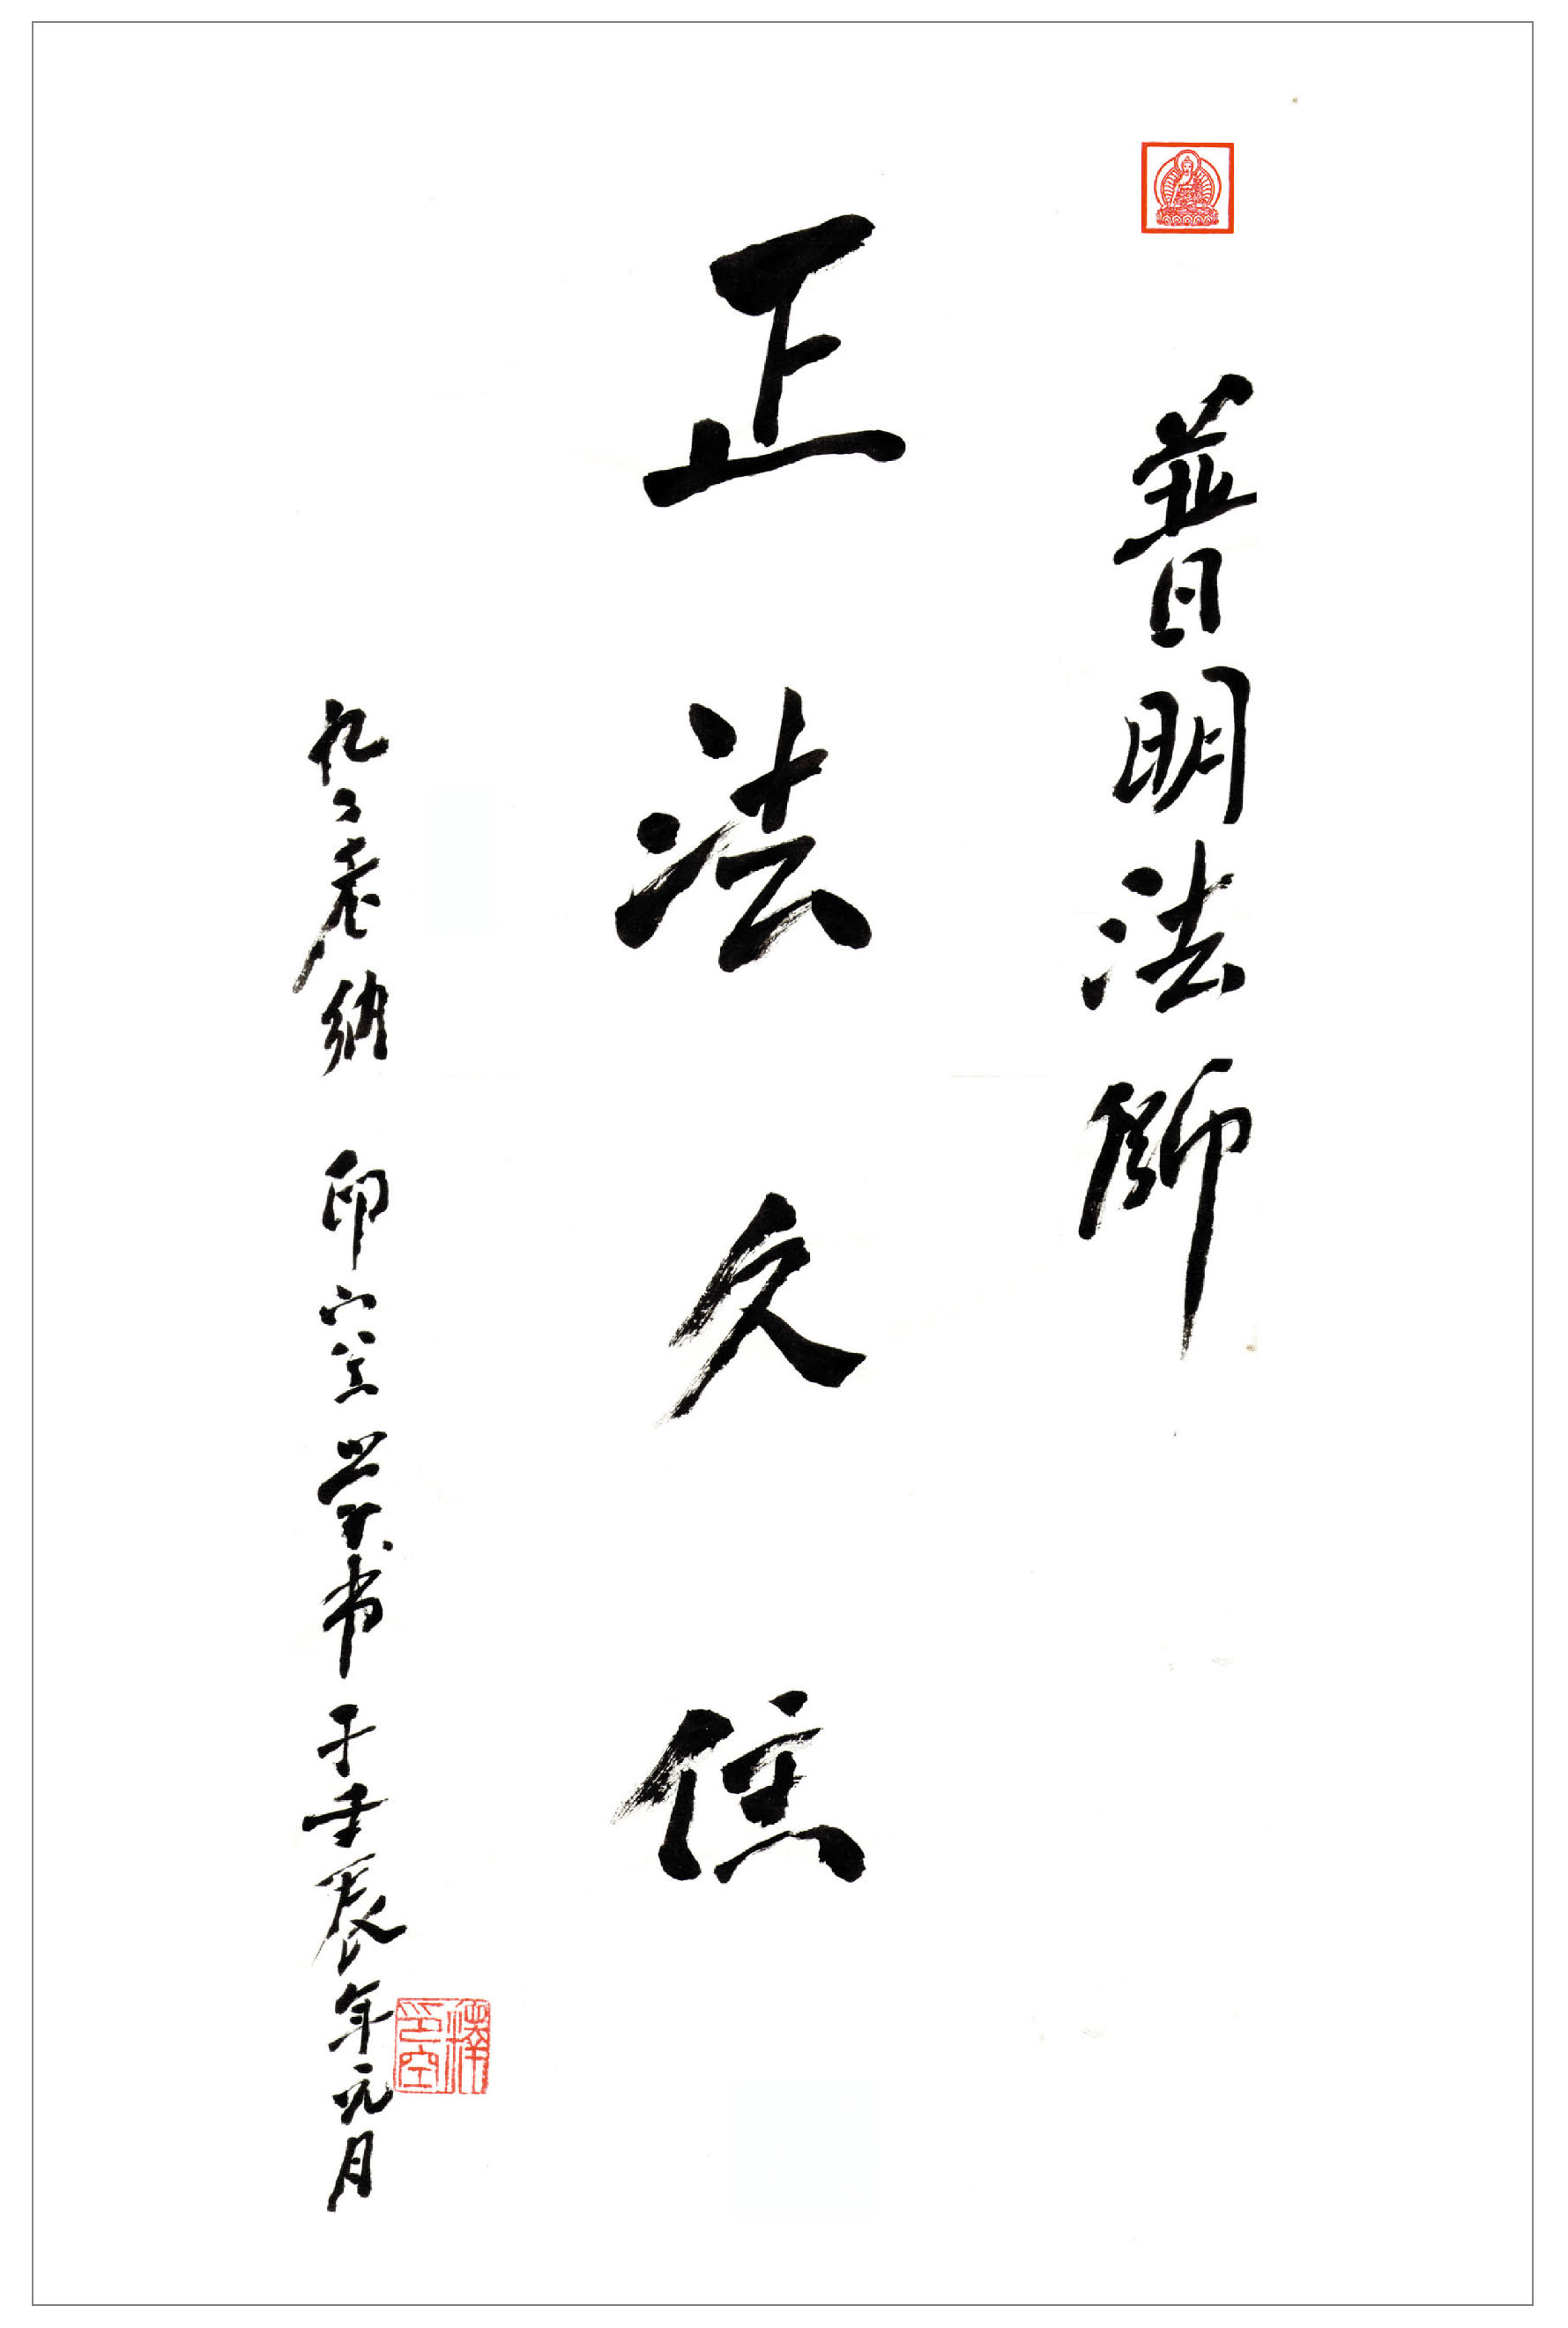 普明法師
正法久住
九二老衲 印空 书于壬辰年元月
釋印空